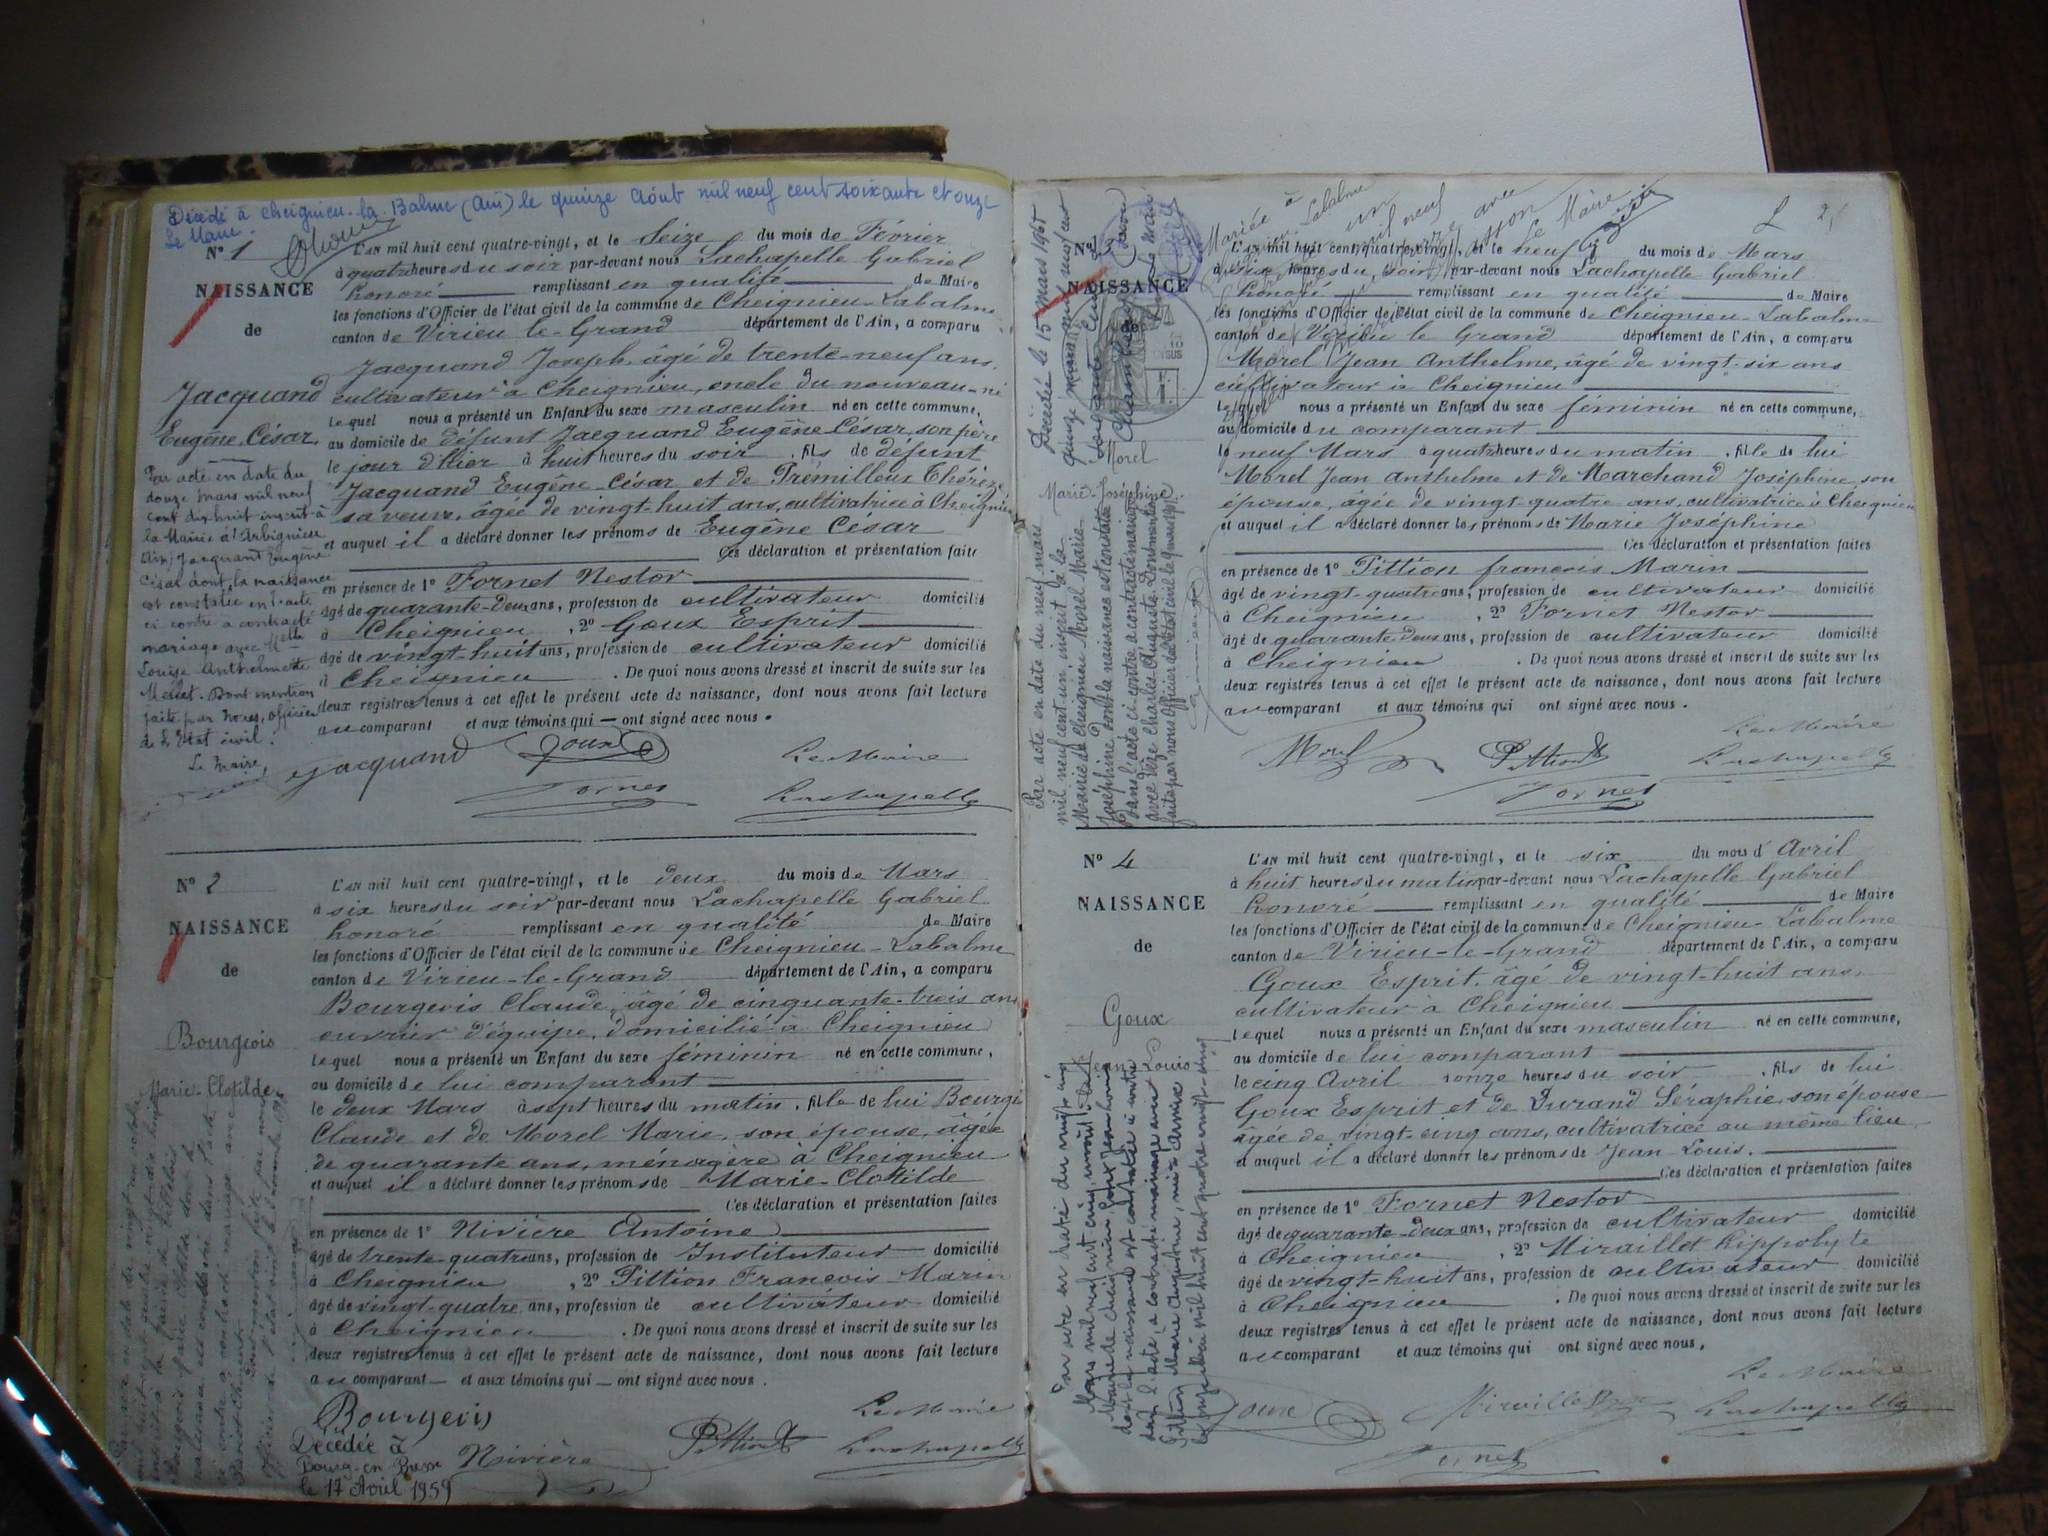 Décédé à Cheignieu-la-Balme (Ain) le quinze Août mil neuf cent soixante et onze
Le Maire.
N° 1
NAISSANCE
de
Jacquand
Eugène César.
Par acte en date du
douze mars mil neuf
cent dix-huit inscrit à
la Mairie d'Arbignieu
Ain, Jacquand Eugène
César dont la naissance
est constatée en l'acte
ci contre a contracté
mariage avec Melle
Louise Anthelmette
Dont mention
faite par nous, officier
de l'Etat civil.
Le Maire,
L'AN mil huit cent quatre-vingt, et le Seize du mois de Février
à quatre heures du soir par-devant nous Lachapelle Gabriel
honoré remplissant en qualité de Maire
les fonctions d'Officier de l'état civil de la commune de Cheignieu-Labalme
canton de Virieu-le-Grand département de l'Ain, a comparu
Jacquand Joseph, âgé de trente-neuf ans,
cultivateur à Cheignieu, oncle du nouveau-né
lequel nous a présenté un Enfant du sexe masculin né en cette commune,
au domicile de défunt Jacquand Eugène César, son père
le jour d'hier à huit heures du soir, fils de défunt
Jacquand Eugène César et de Trémilleux Thérèze
sa veuve, âgée de vingt-huit ans, cultivatrice à Cheignieu
et auquel il a déclaré donner les prénoms de Eugène César
Ces déclaration et présentation faites
en présence de 1° Fornet Nestor
âgé de quarante-deux ans, profession de cultivateur domicilié
à Cheignieu, 2° Goux Esprit
âgé de vingt-huit ans, profession de cultivateur domicilié
à Cheignieu. De quoi nous avons dressé et inscrit de suite sur les
deux registres tenus à cet effet le présent acte de naissance, dont nous avons fait lecture
au comparant et aux témoins qui — ont signé avec nous.
Jacquand Goux Le Maire
Fornet Lachapelle
N° 2
NAISSANCE
de
Bourgeois
Marie-Clotilde
L'AN mil huit cent quatre-vingt, et le deux du mois de Mars
à six heures du soir par-devant nous Lachapelle Gabriel
honoré remplissant en qualité de Maire
les fonctions d'Officier de l'état civil de la commune de Cheignieu-Labalme
canton de Virieu-le-Grand département de l'Ain, a comparu
Bourgeois Claude, âgé de cinquante-trois ans
ouvrier d'équipe, domicilié à Cheignieu
lequel nous a présenté un Enfant du sexe féminin né en cette commune,
au domicile de lui comparant
le deux Mars à sept heures du matin, fille de lui Bourgeois
Claude et de Morel Marie, son épouse, âgée
de quarante ans, ménagère à Cheignieu
et auquel il a déclaré donner les prénoms de Marie-Clotilde
Ces déclaration et présentation faites
en présence de 1° Nivière Antoine
âgé de trente-quatre ans, profession de Instituteur domicilié
à Cheignieu, 2° Pittion François-Marin
âgé de vingt-quatre ans, profession de cultivateur domicilié
à Cheignieu. De quoi nous avons dressé et inscrit de suite sur les
deux registres tenus à cet effet le présent acte de naissance, dont nous avons fait lecture
au comparant — et aux témoins qui — ont signé avec nous.
Bourgeois Le Maire
Nivière Pittion Lachapelle
Décédée à
Bourg-en-Bresse
le 17 Avril 1959
Décédée le 15 mars 1965
Mariée à
N° 3
NAISSANCE
de
Morel
Marie-Joséphine
Par acte en date du neuf mars
mil neuf cent un inscrit à la
Mairie de Cheignieu Morel Marie
Joséphine dont la naissance est constatée
dans l'acte ci-contre a contracté mariage
L'AN mil huit cent quatre-vingt, et le neuf du mois de Mars
à six heures du soir par-devant nous Lachapelle Gabriel
honoré remplissant en qualité de Maire
les fonctions d'Officier de l'état civil de la commune de Cheignieu-Labalme
canton de Virieu le Grand département de l'Ain, a comparu
Morel Jean Anthelme, âgé de vingt-six ans
cultivateur à Cheignieu
lequel nous a présenté un Enfant du sexe féminin né en cette commune,
au domicile du comparant
le neuf Mars à quatre heures du matin, fille de lui
Morel Jean Anthelme et de Marchand Joséphine, son
épouse, âgée de vingt-quatre ans, cultivatrice à Cheignieu
et auquel il a déclaré donner les prénoms de Marie Joséphine
Ces déclaration et présentation faites
en présence de 1° Pittion françois Marin
âgé de vingt-quatre ans, profession de cultivateur domicilié
à Cheignieu, 2° Fornet Nestor
âgé de quarante-deux ans, profession de cultivateur domicilié
à Cheignieu. De quoi nous avons dressé et inscrit de suite sur les
deux registres tenus à cet effet le présent acte de naissance, dont nous avons fait lecture
au comparant et aux témoins qui ont signé avec nous.
Morel Pittion Le Maire
Fornet Lachapelle
N° 4
NAISSANCE
de
Goux
Jean-Louis
L'AN mil huit cent quatre-vingt, et le six du mois d'Avril
à huit heures du matin par-devant nous Lachapelle Gabriel
honoré remplissant en qualité de Maire
les fonctions d'Officier de l'état civil de la commune de Cheignieu-Labalme
canton de Virieu-le-Grand département de l'Ain, a comparu
Goux Esprit, âgé de vingt-huit ans,
cultivateur à Cheignieu
lequel nous a présenté un Enfant du sexe masculin né en cette commune,
au domicile de lui comparant
le cinq Avril à onze heures du soir, fils de lui
Goux Esprit et de Durand Séraphie, son épouse
âgée de vingt-cinq ans, cultivatrice au même lieu
et auquel il a déclaré donner les prénoms de Jean-Louis.
Ces déclaration et présentation faites
en présence de 1° Fornet Nestor
âgé de quarante-deux ans, profession de cultivateur domicilié
à Cheignieu, 2° Miraillet hippolyte
âgé de vingt-huit ans, profession de cultivateur domicilié
à Cheignieu. De quoi nous avons dressé et inscrit de suite sur les
deux registres tenus à cet effet le présent acte de naissance, dont nous avons fait lecture
au comparant et aux témoins qui ont signé avec nous.
Goux Le Maire
Fornet Lachapelle